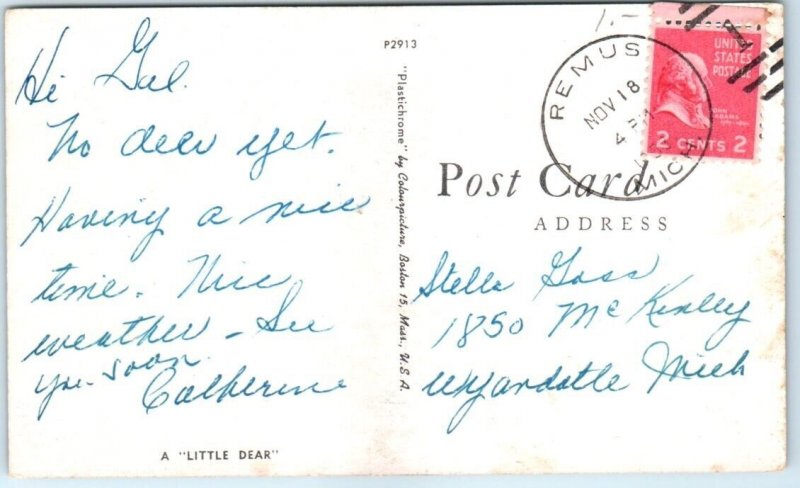 Hi Gal.
No deer yet.
Having a nice
time. Nice
weather - See
you soon
Catherine
A "LITTLE DEAR"
P2913
"Plastichrome" by Colourpicture, Boston 15, Mass., U.S.A.
REMUS
NOV 18
4 PM
MICH
UNITED
STATES
POSTAGE
JOHN
ADAMS
2 CENTS 2
Post Card
ADDRESS
Stella Goss
1850 McKinley
Wyandotte Mich